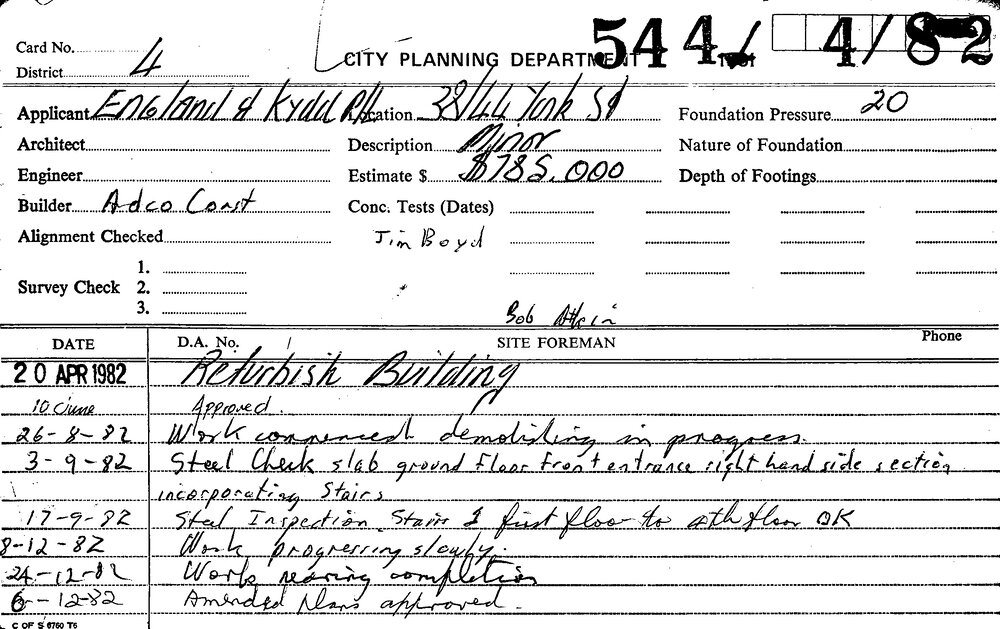 Card No. 544/ 4/82
District 4 CITY PLANNING DEPARTMENT
Applicant England & Kydd P/L Location 38/44 York St Foundation Pressure 20
Architect Description Minor Nature of Foundation
Engineer Estimate $ $785,000 Depth of Footings
Builder Adco Const Conc. Tests (Dates)
Alignment Checked Jim Boyd
1.
Survey Check 2.
3.
Bob
DATE D.A. No. SITE FOREMAN Phone
20 APR 1982 Refurbish Building
10 June Approved.
26-8-82 Work commenced demolishing in progress.
3-9-82 Steel Check slab ground floor front entrance right hand side section
incorporating Stairs
17-9-82 Steel Inspection Stairs first floor to 4th floor OK
8-12-82 Work progressing slowly.
24-12-82 Work nearing completion
6-12-82 Amended plans approved.
C OF S 6760 T6